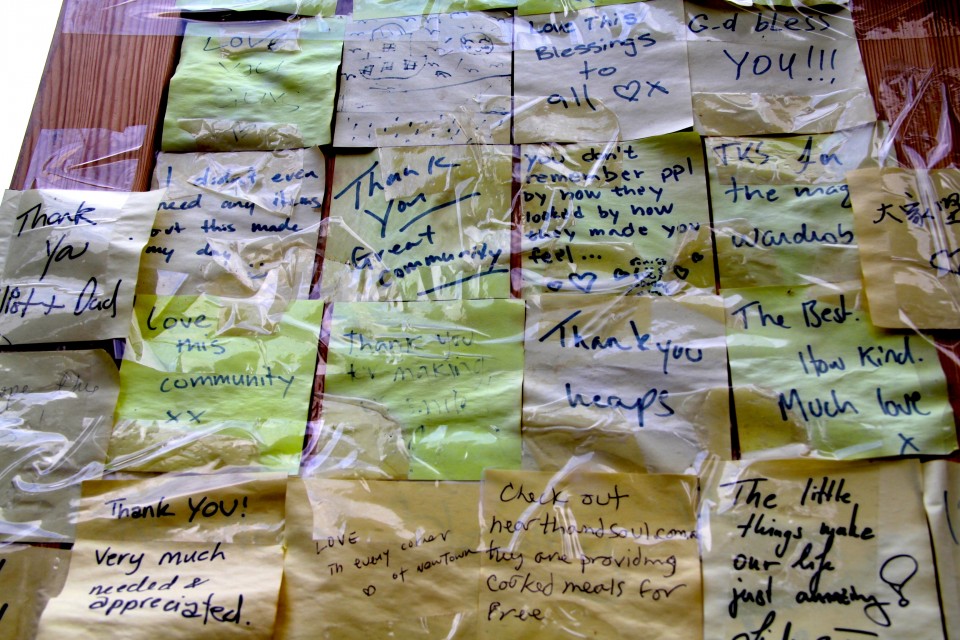 LOVE
Love This
Blessings
to
all ♡X
G.d bless
YOU!!!
Thank
You
Dad
I didn't even
need any items
but this made
my day
Thank
You
Great
Community
you don't
remember ppl
by how they
looked by how
they made you
feel...
TKS for
the mag
wardrob
大家
Love
this
community
xx
Thank you
Thank you
heaps
The Best.
How Kind.
Much love
x
Thank YOU!
Very much
needed &
appreciated.
LOVE
In every corner
of newtown
♡
Check out
hearthandsoul.com.a
they are providing
cooked meals for
free
The little
things make
our life
just amazing